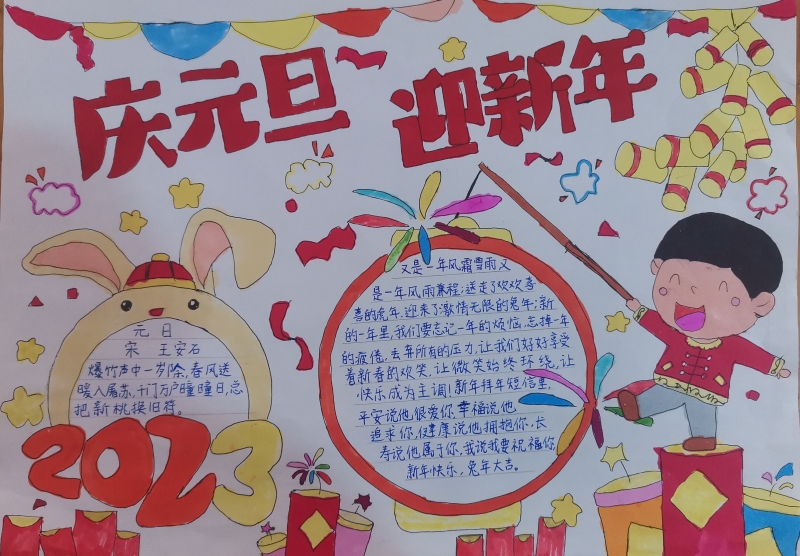 庆元旦 迎新年
元日
宋 王安石
爆竹声中一岁除,春风送
暖入屠苏,千门万户曈曈日,总
把新桃换旧符。
2023
又是一年风霜雪雨又
是一年风雨兼程;送走了欢欢喜
喜的虎年,迎来了激情无限的兔年;新
的一年里,我们要忘记一年的烦恼,忘掉一年
的疲倦,丢弃所有的压力,让我们好好享受
着新春的欢笑,让微笑始终环绕,让
快乐成为主调!新年拜年短信里,
平安说他很爱你,幸福说他
追求你,健康说他拥抱你,长
寿说他属于你,我说我要祝福你,
新年快乐,兔年大吉。